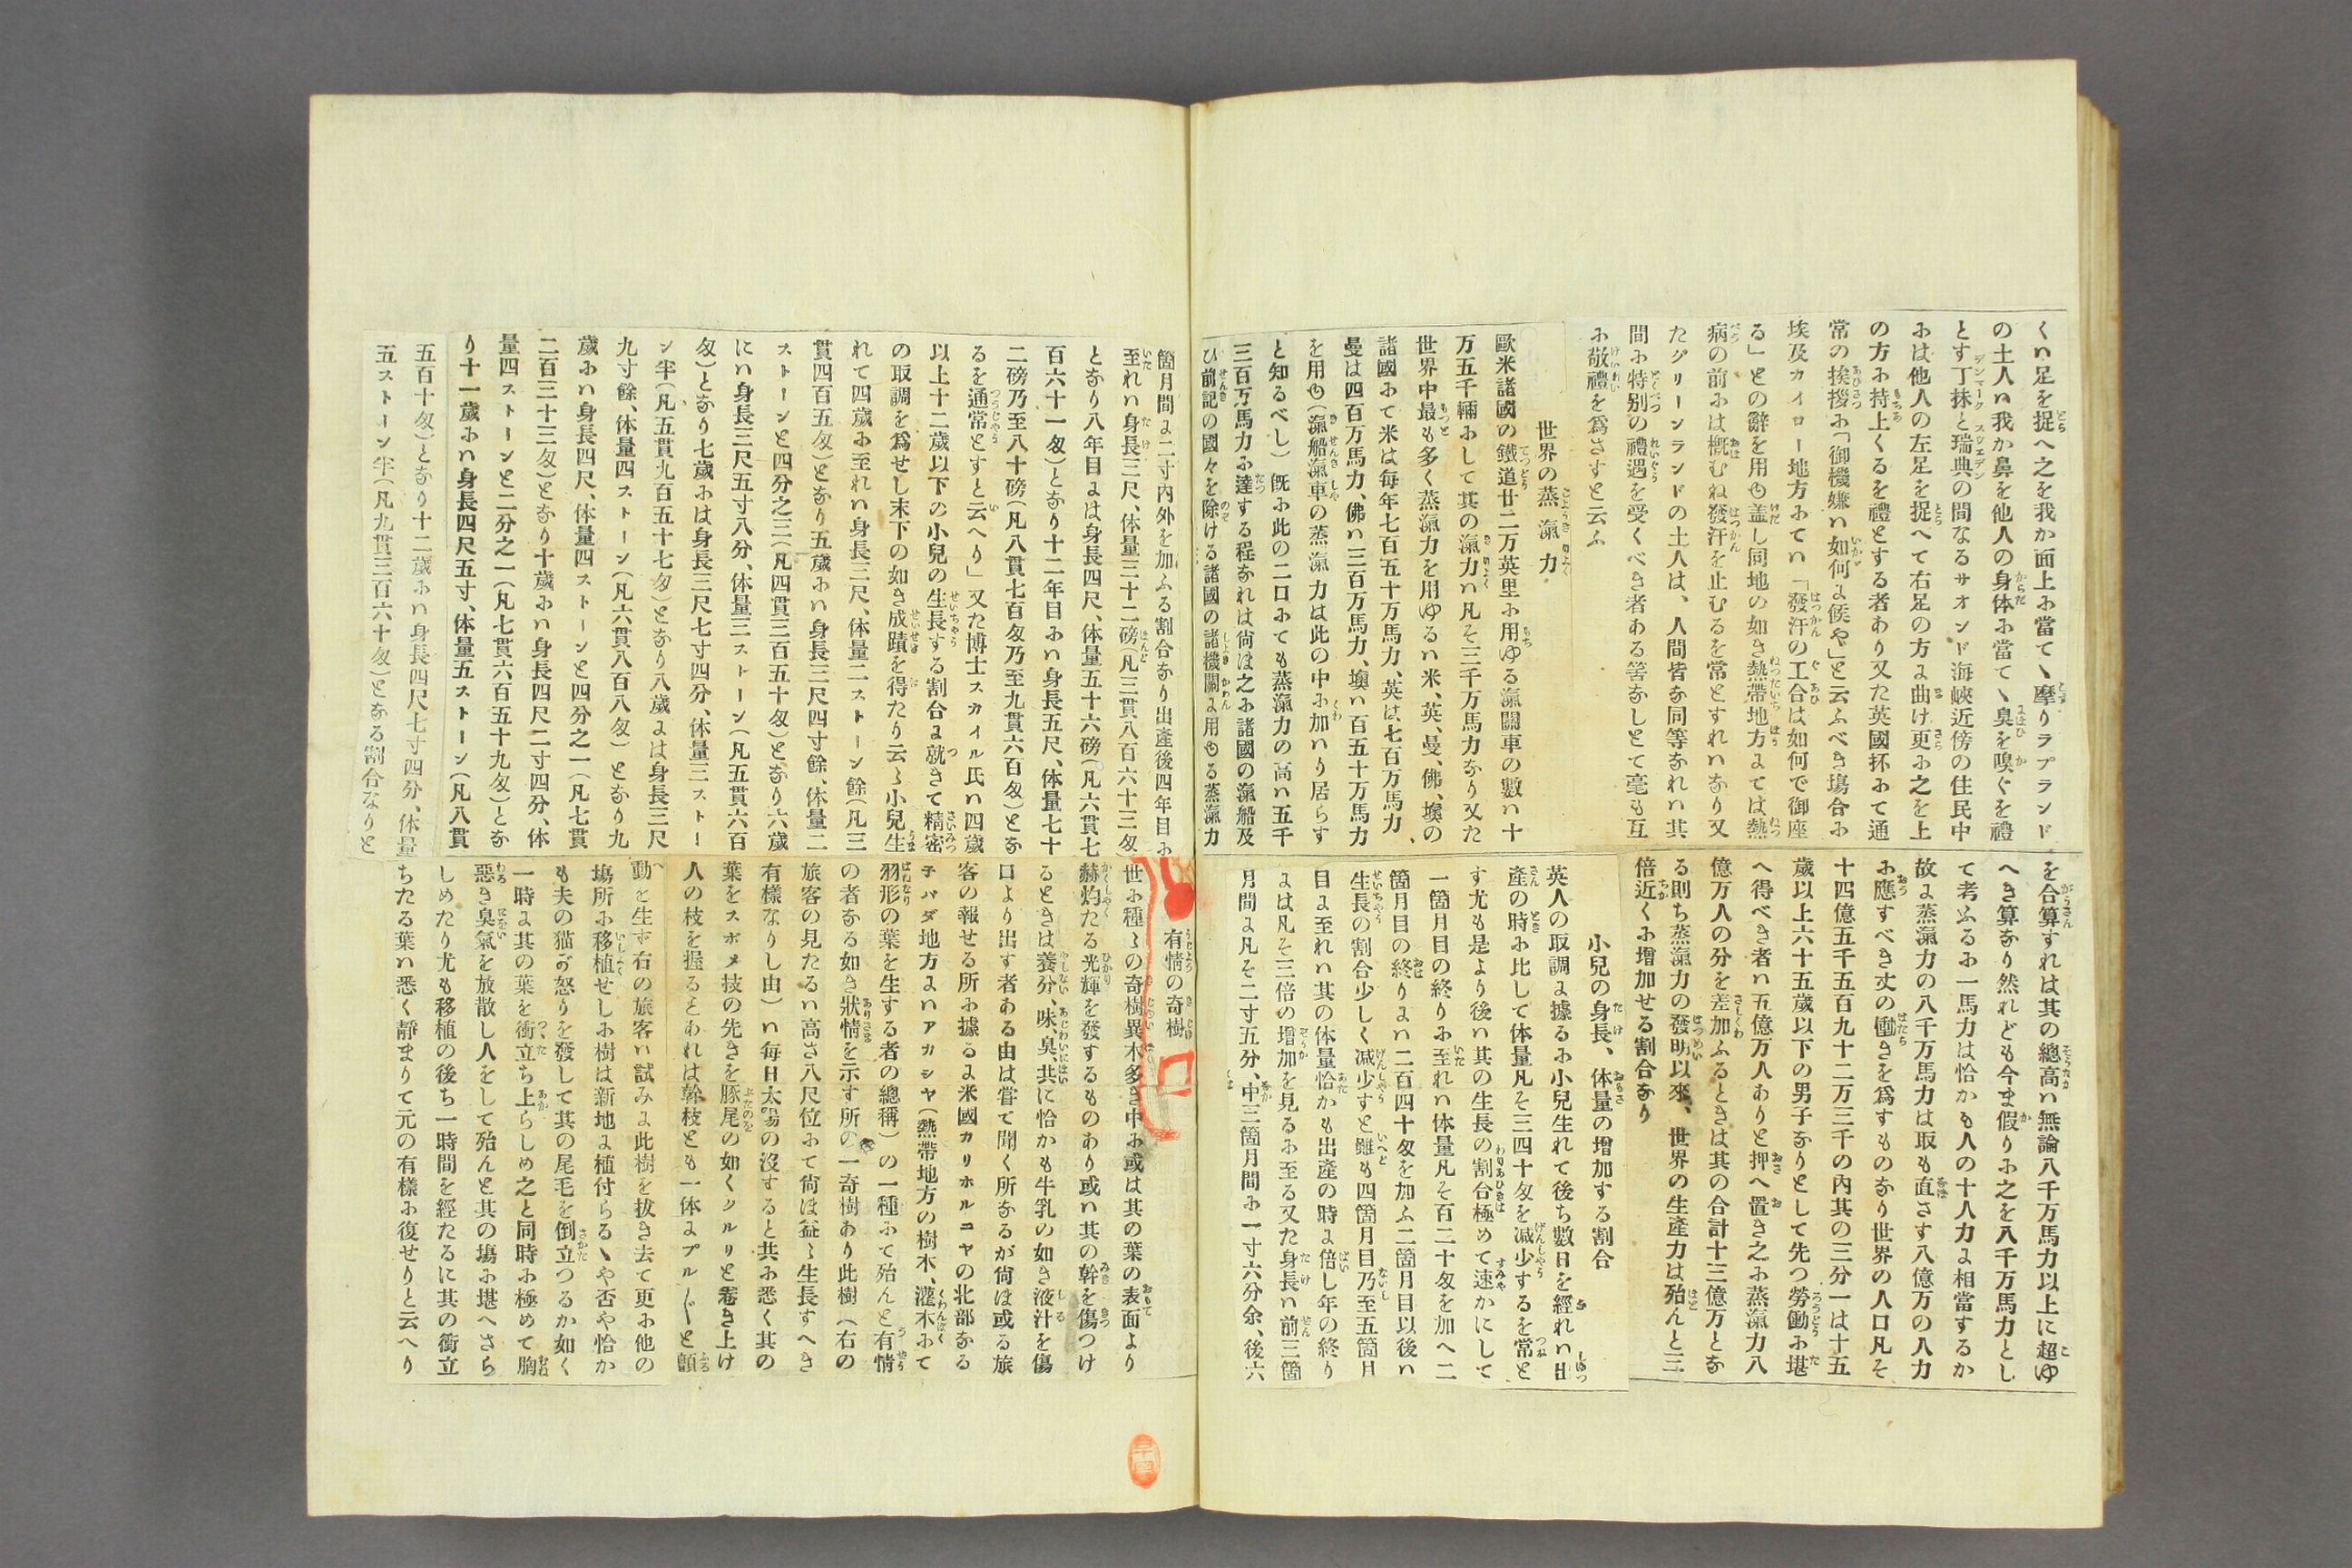 くハ足を捉へ之を我か面上に當てヽ摩りラプランド
の土人ハ我か鼻を他人の身体に當てヽ臭を嗅ぐを禮
とす丁抹と瑞典の間なるサオンド海峽近傍の住民中
には他人の左足を捉へて右足の方に曲け更に之を上
の方に持上くるを禮とする者あり又た英國抔にて通
常の挨拶に「御機嫌ハ如何に候や」と云ふべき塲合に
埃及カイロー地方にてハ「發汗の工合は如何で御座
る」との辭を用ゆ盖し同地の如き熱帶地方にては熱
病の前には概むね發汗を止むるを常とすれハなり又
たグリーンランドの土人は、人間皆な同等なれハ其
間に特別の禮遇を受くべき者ある筈なしとて毫も互
に敬禮を爲さすと云ふ
世界の蒸瀛力
歐米諸國の鐵道廿二万英里に用ゆる瀛關車の數ハ十
万五千輛にして其の瀛力ハ凡そ三千万馬力なり又た
世界中最も多く蒸瀛力を用ゆるハ米、英、曼、佛、墺の
諸國にて米は毎年七百五十万馬力、英は七百万馬力、
曼は四百万馬力、佛ハ三百万馬力、墺ハ百五十万馬力
を用ゆ(瀛船瀛車の蒸瀛力は此の中に加ハり居らす
と知るべし)既に此の二口にても蒸瀛力の高ハ五千
三百万馬力に達する程なれは尙ほ之に諸國の瀛船及
ひ前記の國々を除ける諸國の諸機關に用ゆる蒸瀛力
を合算すれは其の總高ハ無論八千万馬力以上に超ゆ
へき算なり然れども今ま假りに之を八千万馬力とし
て考ふるに一馬力は恰かも人の十人力に相當するか
故に蒸瀛力の八千万馬力は取も直さす八億万の人力
に應すべき丈の働きを爲すものなり世界の人口凡そ
十四億五千五百九十二万三千の內其の三分一は十五
歲以上六十五歲以下の男子なりとして先つ勞働に堪
へ得べき者ハ五億万人ありと押へ置き之に蒸瀛力八
億万人の分を差加ふるときは其の合計十三億万とな
る則ち蒸瀛力の發明以來、世界の生產力は殆んと三
倍近くに增加せる割合なり
小兒の身長、体量の增加する割合
英人の取調に據るに小兒生れて後ち數日を經れハ出
產の時に比して体量凡そ三四十匁を减少するを常と
す尤も是より後ハ其の生長の割合極めて速かにして
一箇月目の終りに至れハ体量凡そ百二十匁を加へ二
箇月目の終りにハ二百四十匁を加ふ二箇月目以後ハ
生長の割合少しく减少すと雖も四箇月目乃至五箇月
目に至れハ其の体量恰かも出產の時に倍し年の終り
には凡そ三倍の增加を見るに至る又た身長ハ前三箇
月間に凡そ二寸五分、中三箇月間に一寸六分余、後六
箇月間に二寸內外を加ふる割合なり出產後四年目に
至れハ身長三尺、体量三十二磅(凡三貫八百六十三匁
となり八年目には身長四尺、体量五十六磅(凡六貫七
百六十一匁)となり十二年目にハ身長五尺、体量七十
二磅乃至八十磅(凡八貫七百匁乃至九貫六百匁)とな
るを通常とすと云へり」又た博士スカイル氏ハ四歲
以上十二歲以下の小兒の生長する割合に就きて精密
の取調を爲せし末下の如き成蹟を得たり云々小兒生
れて四歲に至れハ身長三尺、体量二ストーン餘(凡三
貫四百五匁)となり五歲にハ身長三尺四寸餘、体量二
ストーンと四分之三(凡四貫三百五十匁)となり六歲
にハ身長三尺五寸八分、体量三ストーン(凡五貫六百
匁)となり七歲には身長三尺七寸四分、体量三ストー
ン半(凡五貫九百五十七匁)となり八歲には身長三尺
九寸餘、体量四ストーン(凡六貫八百八匁)となり九
歲にハ身長四尺、体量四ストーンと四分之一(凡七貫
二百三十三匁)となり十歲にハ身長四尺二寸四分、体
量四ストーンと二分之一(凡七貫六百五十九匁)とな
り十一歲にハ身長四尺五寸、体量五ストーン(凡八貫
五百十匁)となり十二歲にハ身長四尺七寸四分、体量
五ストーン半(凡九貫三百六十匁)となる割合なりと
有情の奇樹
世に種々の奇樹異木多き中に或は其の葉の表面より
赫灼たる光輝を發するものあり或ハ其の幹を傷つけ
るときは養分、味、臭、共に恰かも牛乳の如き液汁を傷
口より出す者ある由は甞て聞く所なるが尙ほ或る旅
客の報せる所に據るに米國カリホルニヤの北部なる
子バダ地方にハアカシヤ(熱帶地方の樹木、灌木にて
羽形の葉を生する者の總稱)の一種にて殆んと有情
の者なる如き狀情を示す所の一奇樹あり此樹(右の
旅客の見たるハ高さ八尺位にて尙ほ益々生長すへき
有樣なりし由)ハ毎日太陽の沒すると共に悉く其の
葉をスボメ技の先きを豚尾の如くクルリと卷き上け
人の枝を握るとあれは幹枝とも一体にプル〱と顫
動を生ず右の旅客ハ試みに此樹を拔き去て更に他の
塲所に移植せしに樹は新地に植付らるヽや否や恰か
も夫の猫が怒りを發して其の尾毛を倒立つるか如く
一時に其の葉を衝立ち上らしめ之と同時に極めて胸
惡き臭氣を放散し人をして殆んと其の塲に堪へさら
しめたり尤も移植の後ち一時間を經たるに其の衝立
ちたる葉ハ悉く靜まりて元の有樣に復せりと云へり